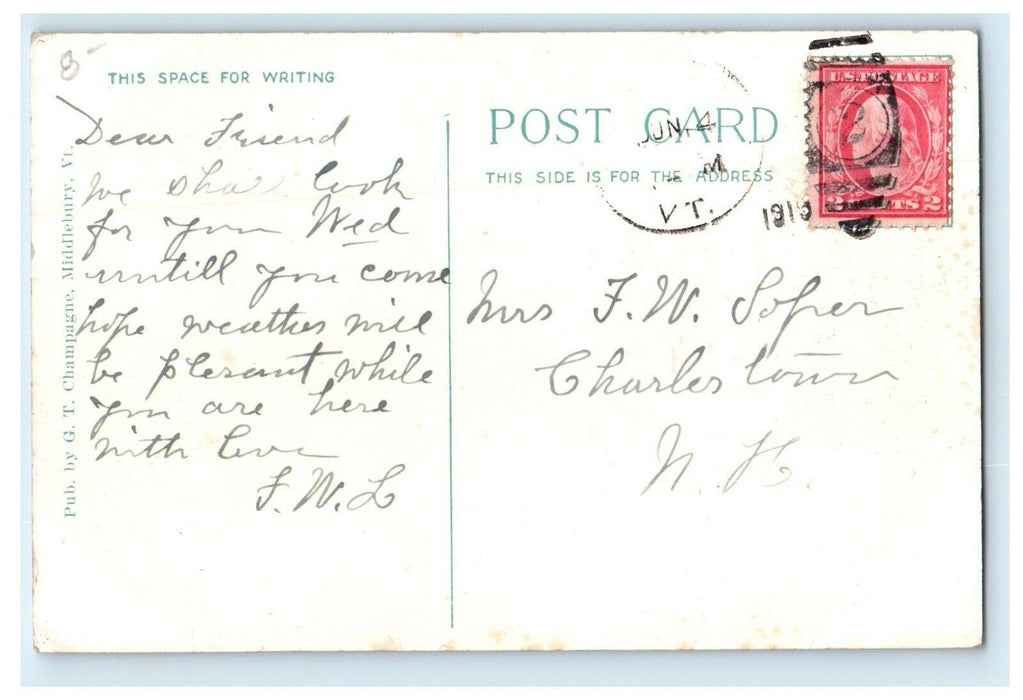 8
THIS SPACE FOR WRITING
Dear Friend
we shal look
for you Wed
untill you come
hope weather will
be plesant while
you are here
with love
F. W. L
Pub. by G. T. Champagne, Middlebury, Vt.
POST CARD
THIS SIDE IS FOR THE ADDRESS
JUN 4
M
VT.
U.S. POSTAGE
2
2 2
Mrs F. W. Soper
Charlestown
N. H.